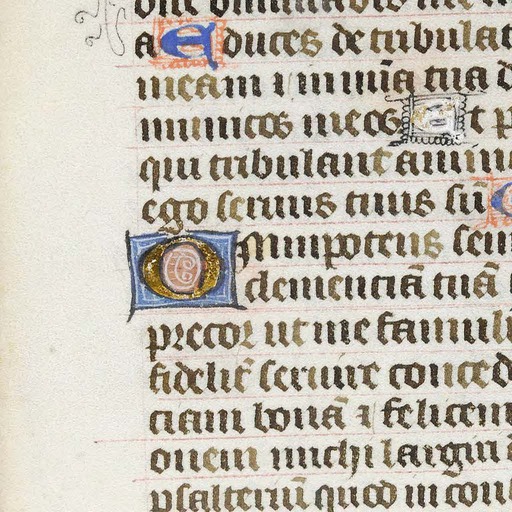 a Educes de tribulat
meam ⁊ in mīa tua d
inimicos meos Et p
qui tribulant anim
ego seruus tuus sū
Omnipotens sem
clementiā tuā
precor ut me famul
fidelit͛ seruire conced
ciam bonā ⁊ felicem
onem michi largiri
psalteriū quod in con